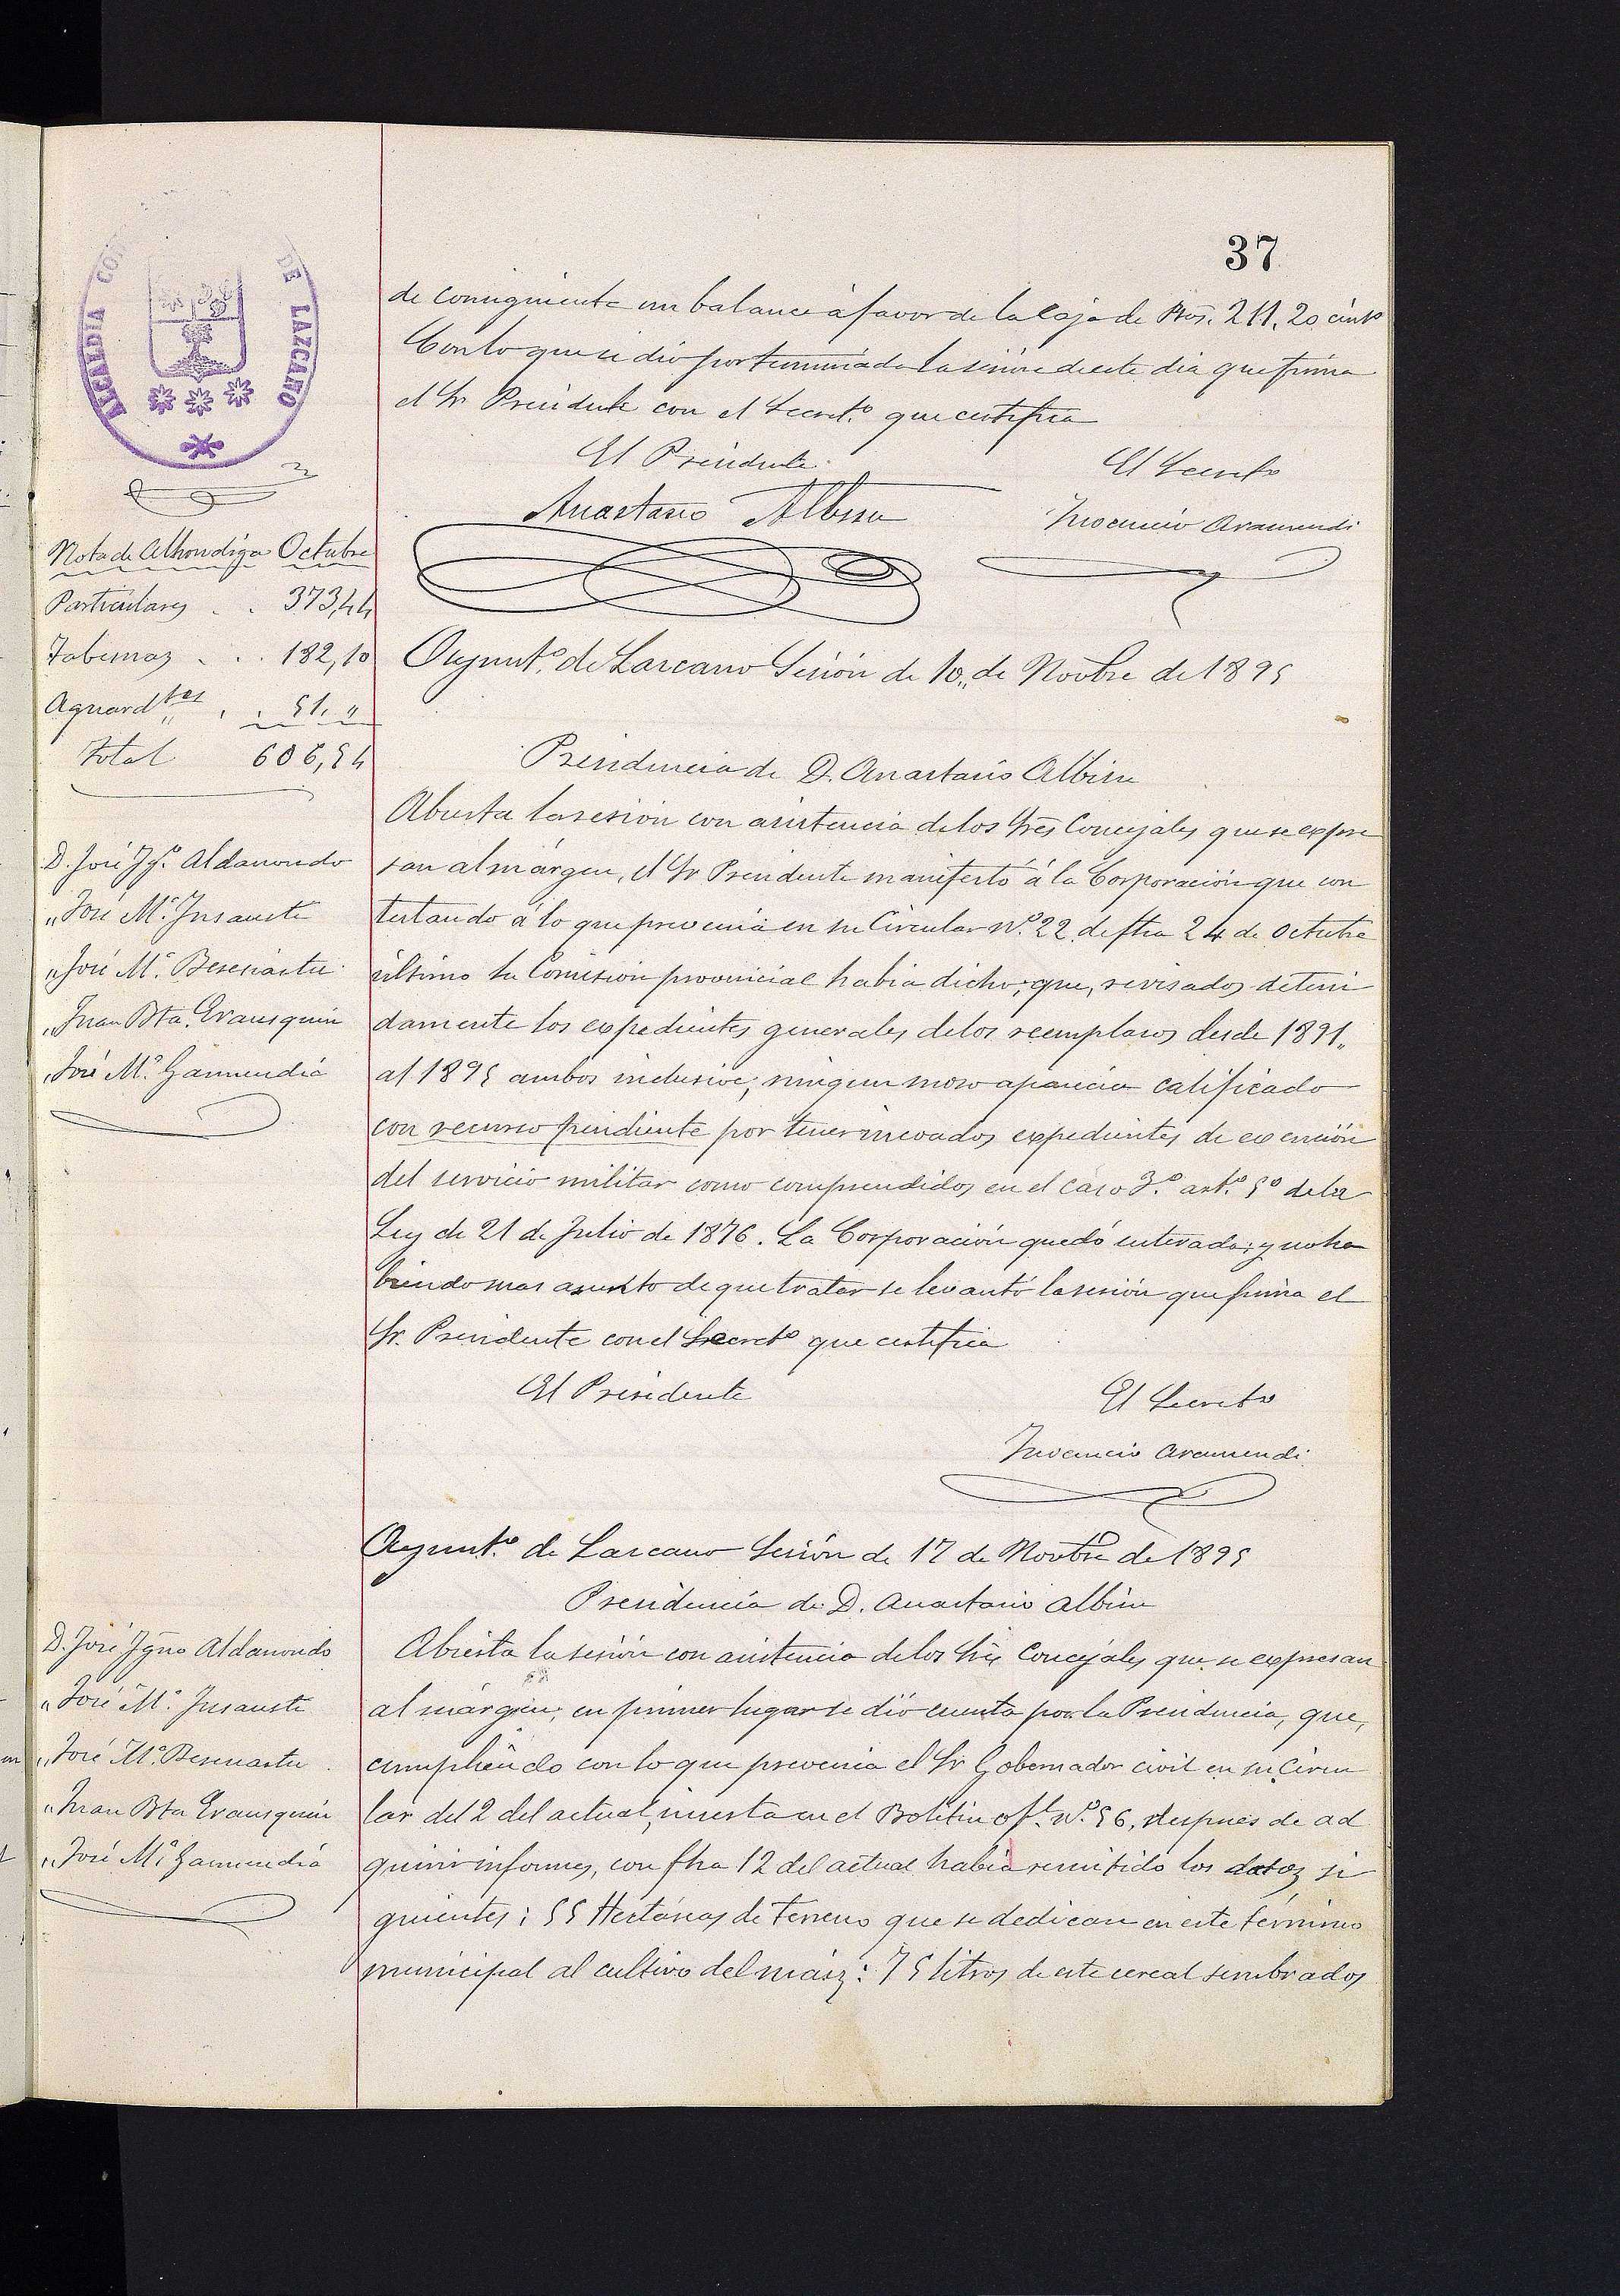 37
ALCALDIA CO DE LAZCANO
de consiguiente un balance á favor de la Caja de Ptas. 211,20 cénts
Con lo que se dió por terminada la sesión de este dia que firma
el Sr Presidente con el Secretº que certifica
El Presidente
El Secretº
Anastasio Albisu
Inocencio Aramendi
Nota de Alhondiga Octubre
Particulares . . 373,44
Tabernas . . . 182,10
Aguardtes . . 51. "
Total 606,54
Ayuntº de Lazcano Sesión de 10, de Novbre de 1895
Presidencia de D. Anastasio Albisu
D. José Igº Aldasoro
" José Mª Insausti
" José Mª Beseriastu
" Juan Bta. Erausquin
" José Mª Garmendia
Abierta la sesión con asistencia de los Sres Concejales que se expre
san al márgen, el Sr Presidente manifestó á la Corporación que con
testando á lo que prevenia en su Circular nº 22 de fha 24 de Octubre
último la Comisión provincial habia dicho; que, revisados deteni
damente los expedientes generales de los reemplazos desde 1891,
al 1895 ambos inclusive, ningun mozo aparecia calificado
con recurso pendiente por tener incoados expedientes de exención
del servicio militar como comprendidos en el caso 3º artº 5º de la
Ley de 21 de Julio de 1876. La Corporación quedó enterada; y no ha
biendo mas asunto de que tratar se levantó la sesión que firma el
Sr. Presidente con el Secretº que certifica
El Presidente
El Secretº
Inocencio Aramendi
Ayuntº de Lazcano Sesión de 17 de Novbre de 1895
Presidencia de D. Anastasio Albisu
D. José Igno Aldasoro
" José Mª Insausti
" José Mª Beseriastu
" Juan Bta Erausquin
" José Mª Garmendia
Abierta la sesión con asistencia de los Sres Concejales que se expresan
al márgen; en primer lugar se dió cuenta por la Presidencia, que,
cumpliendo con lo que prevenia el Sr Gobernador civil en su Circu
lar del 2 del actual, inserta en el Boletin ofl. nº 56, despues de ad
quirir informes, con fha 12 del actual habia remitido los datos si
guientes: 55 Hectáreas de terreno que se dedican en este término
municipal al cultivo del maiz: 75 litros de este cereal sembrados